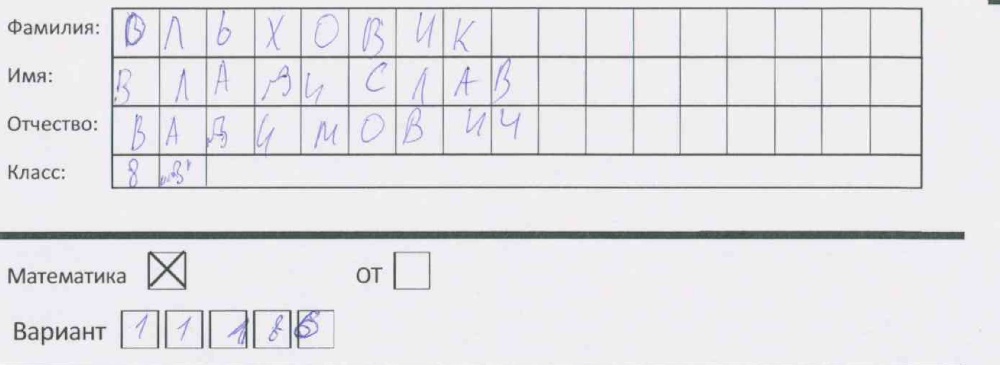 Фамилия: ОЛЬХОВИК
Имя: ВЛАДИСЛАВ
Отчество: ВАДИМОВИЧ
Класс: 8 "В"
Математика ОТ
Вариант